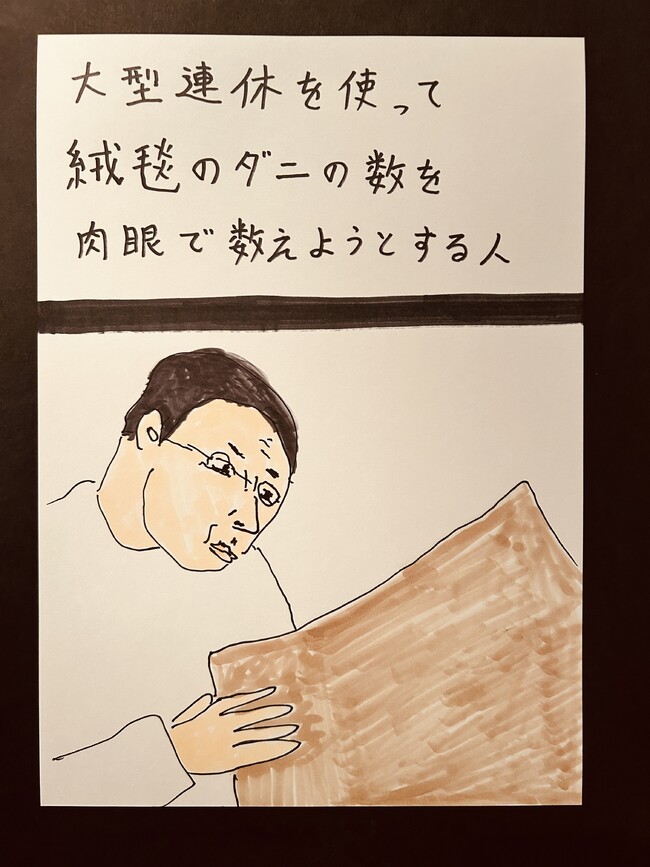 大型連休を使って
絨毯のダニの数を
肉眼で数えようとする人